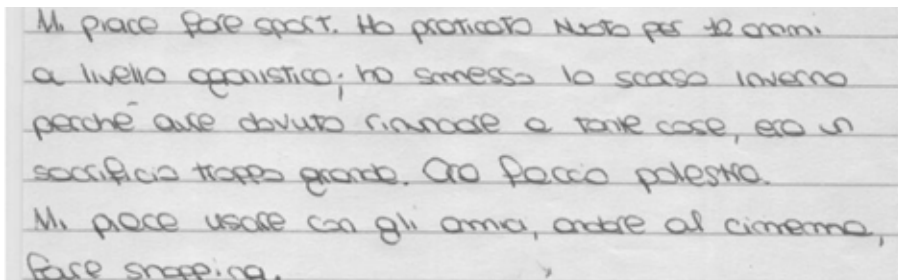 Mi piace fare sport. Ho praticato Nuoto per 12 anni
a livello agonistico; ho smesso lo scorso inverno
perché avrei dovuto rinunciare a tante cose, era un
sacrificio troppo grande. Ora faccio palestra.
Mi piace uscire con gli amici, andare al cinema,
fare shopping.